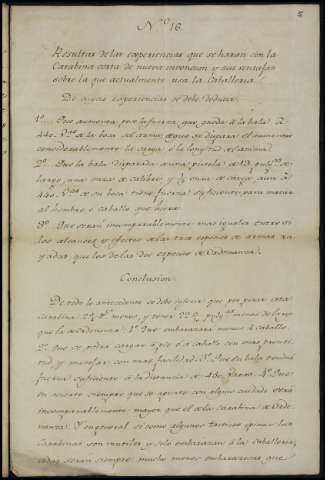 8
N.º 16.
Resultas de las experiencias que se haran con la
Carabina corta de nueva invencion y sus ventajas
sobre la que actualmente usa la Caballeria.
De cuyas experiencias se debe deducir.
1º Que aumenta por la fuerza que queda à la bala à
440 de la boca del arma que se dispara el aumentar
considerablemente la carga ò la longitud del anima.
2º Que la bala disparada
largo, una onza de calibre, y onza de carga
440 de su boca tiene fuerza suficiente para matar
al hombre ò caballo que hiera.
3º Que seran incomparablemente mas iguales
los alcances y efectos de las tres especies de armas ra-
yadas, que los de las dos especies de Ordenanza.
Conclusion
De todo lo antecedente se debe inferir que por pesar esta
Carabina menos, y tener menos de largo
que la de Ordenanza. 1º Que embarazará menos à caballo.
2º Que se podra cargar à pie ò à caballo con mas pronti-
tud, y manejar con mas facilidad. 3º Que su bala tendrá
fuerza suficiente à la distancia de 440 4º Que
su acierto siempre que se apunte con algun cuidado será
incomparablemente mayor que el de la carabina de Orde-
nanza. Y en general si como algunos opinan las
Carabinas son inutiles y solo embarazan à la caballeria,
estas serán siempre mucho menos embarazosas que